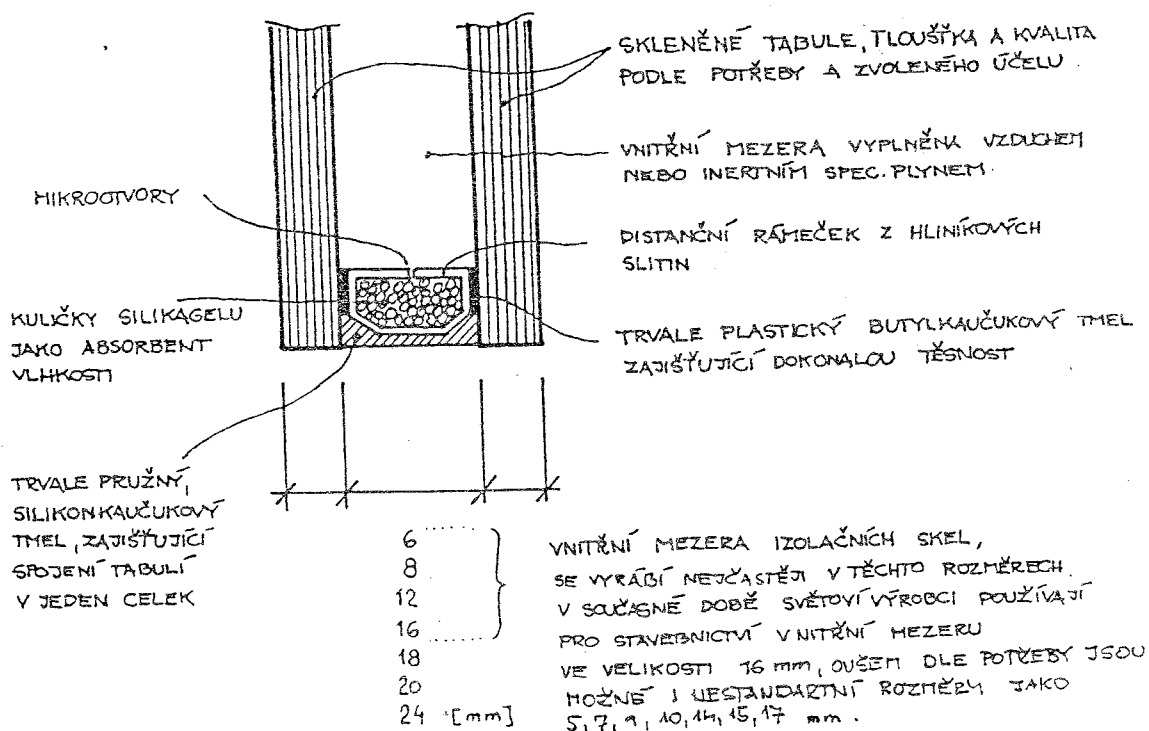 SKLENĚNÉ TABULE, TLOUŠŤKA A KVALITA
PODLE POTŘEBY A ZVOLENÉHO ÚČELU
VNITŘNÍ MEZERA VYPLNĚNA VZDUCHEM
NEBO INERTNÍM SPEC. PLYNEM.
MIKROOTVORY
DISTANČNÍ RÁMEČEK Z HLINÍKOVÝCH
SLITIN
KULIČKY SILIKAGELU
JAKO ABSORBENT
VLHKOSTI
TRVALE PLASTICKÝ BUTYLKAUČUKOVÝ TMEL
ZAJIŠŤUJÍCÍ DOKONALOU TĚSNOST
TRVALE PRUŽNÝ,
SILIKONKAUČUKOVÝ
TMEL, ZAJIŠŤUJÍCÍ
SPOJENÍ TABULÍ
V JEDEN CELEK
6
8
12
16
18
20
24 [mm]
VNITŘNÍ MEZERA IZOLAČNÍCH SKEL,
SE VYRÁBÍ NEJČASTĚJI V TĚCHTO ROZMĚRECH.
V SOUČASNÉ DOBĚ SVĚTOVÍ VÝROBCI POUŽÍVAJÍ
PRO STAVEBNICTVÍ VNITŘNÍ MEZERU
VE VELIKOSTI 16 mm, OVŠEM DLE POTŘEBY JSOU
MOŽNÉ I NESTANDARTNÍ ROZMĚRY JAKO
5, 7, 9, 10, 14, 15, 17 mm.